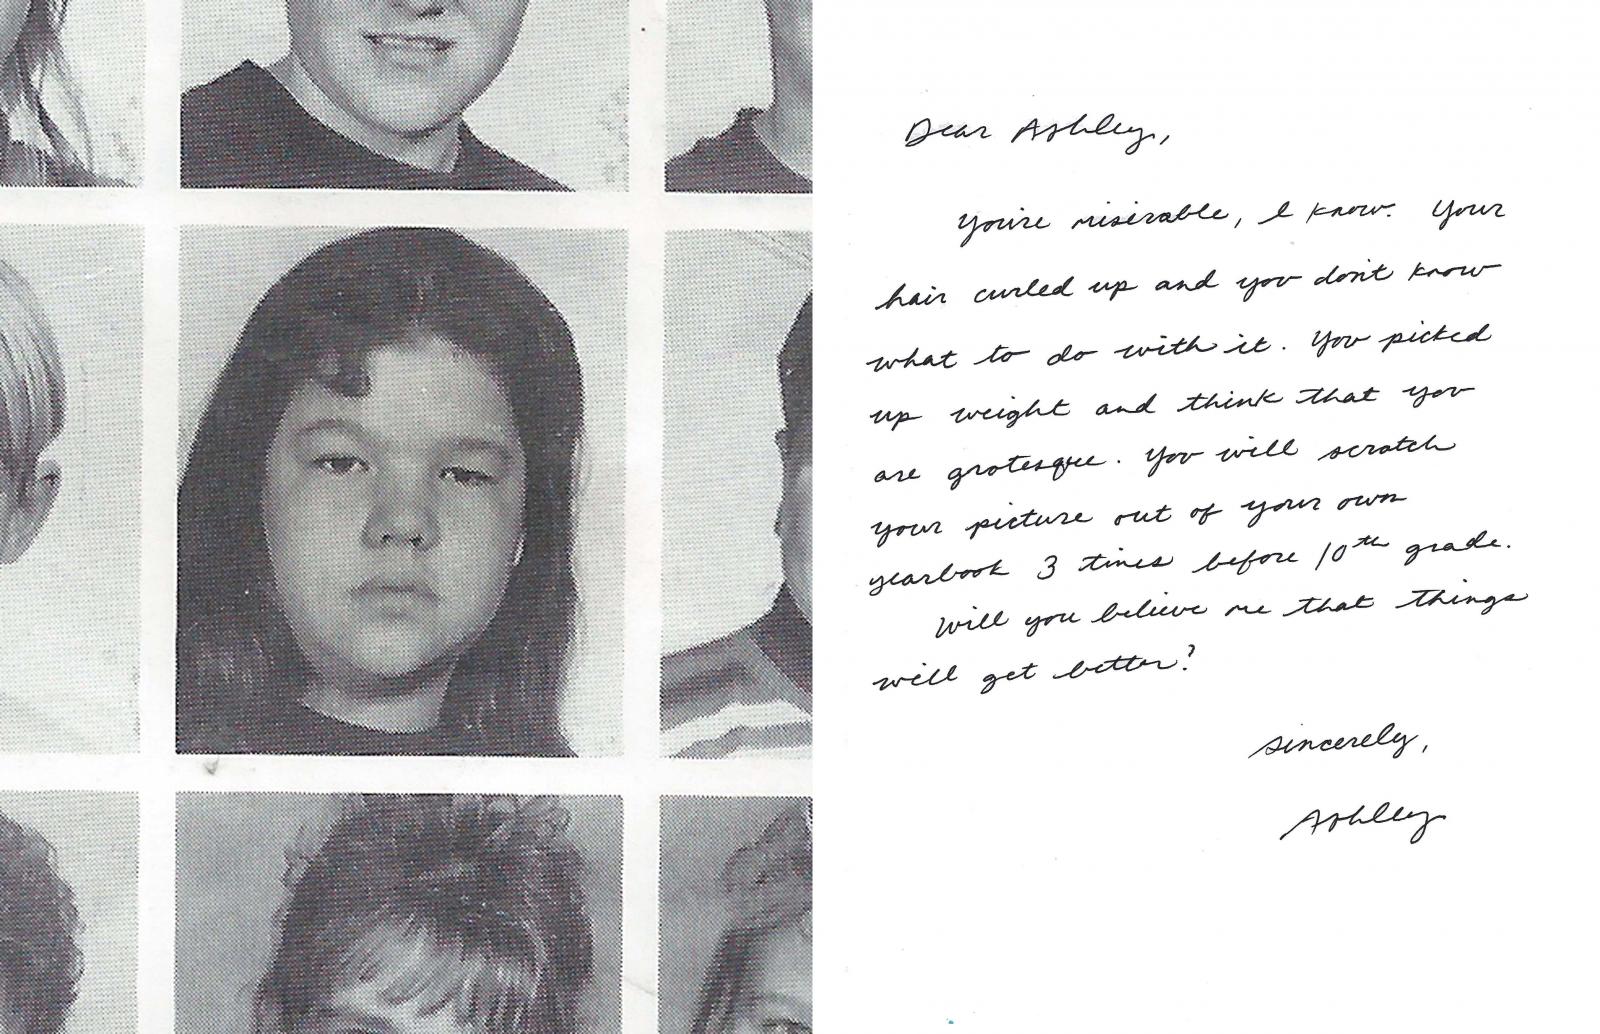 Dear Ashley,
You're miserable, I know. Your
hair curled up and you don't know
what to do with it. You picked
up weight and think that you
are grotesque. You will scratch
your picture out of your own
yearbook 3 times before 10th grade.
Will you believe me that things
will get better?
Sincerely,
Ashley